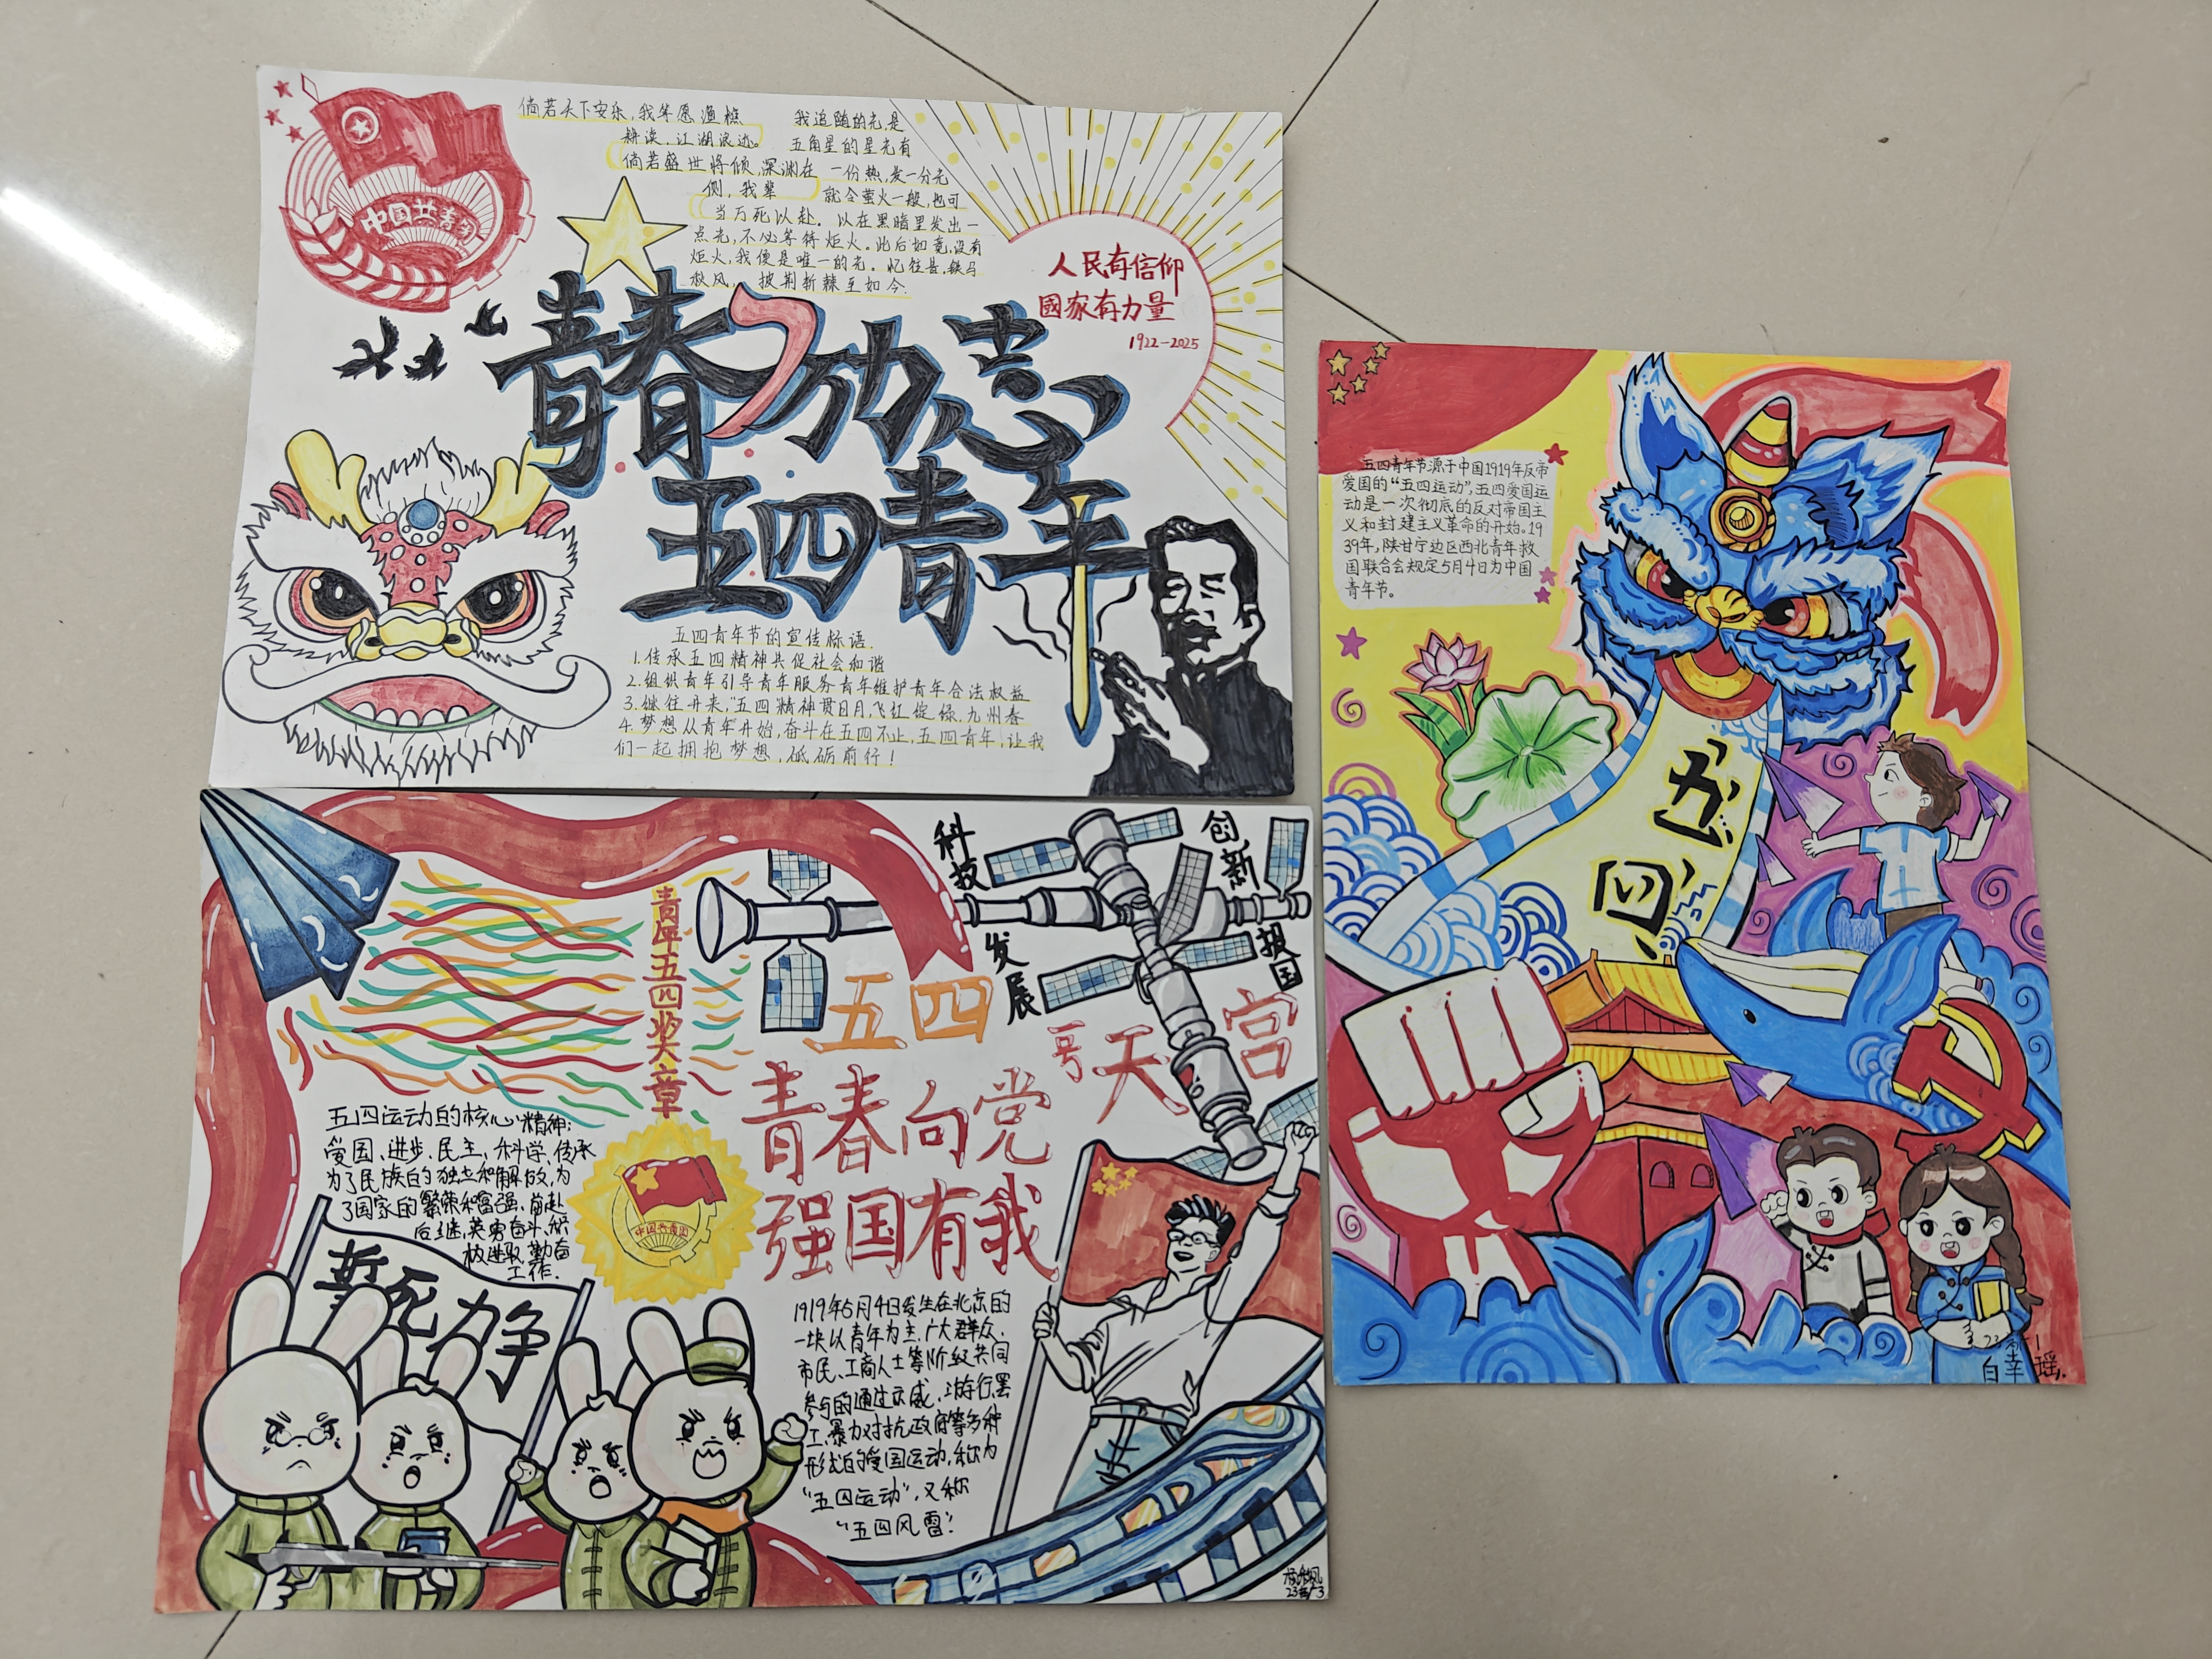 中国共青团
倘若天下安乐,我等愿渔樵
耕读,江湖浪迹。
倘若盛世将倾,深渊在
侧,我辈
当万死以赴。
我追随的光,是
五角星的星光有
一份热,发一分光
就令萤火一般,也可
以在黑暗里发出一
点光,不必等待炬火。此后如竟没有
炬火,我便是唯一的光。忆往昔,铁马
秋风,披荆斩棘至如今.
人民有信仰
國家有力量
1922-2025
青春
五四青年
五四青年节的宣传标语.
1.传承五四精神共促社会和谐
2.组织青年引导青年服务青年维护青年合法权益
3.继往开来,五四精神贯日月,飞红绽绿,九州春
4.梦想从青年开始,奋斗在五四不止,五四青年,让我
们一起拥抱梦想,砥砺前行!
科技
发展
创新
报国
青年五四奖章
五四
青春向党
强国有我
天宫
一号
五四运动的核心精神:
爱国、进步、民主、科学,传承
为了民族的独立和解放,为
了国家的繁荣和富强,前赴
后继,英勇奋斗,积
极进取,勤奋
工作.
中国共青团
誓死力争
1919年5月4日发生在北京的
一块以青年为主,广大群众、
市民、工商人士等阶级共同
参与的通过示威、游行、罢
工、暴力对抗政府等多种
形式的爱国运动,称为
“五四运动”,又称
“五四风雷”.
五四青年节源于中国1919年反帝
爱国的“五四运动”,五四爱国运
动是一次彻底的反对帝国主
义和封建主义革命的开始。19
39年,陕甘宁边区西北青年救
国联合会规定5月4日为中国
青年节。
五四